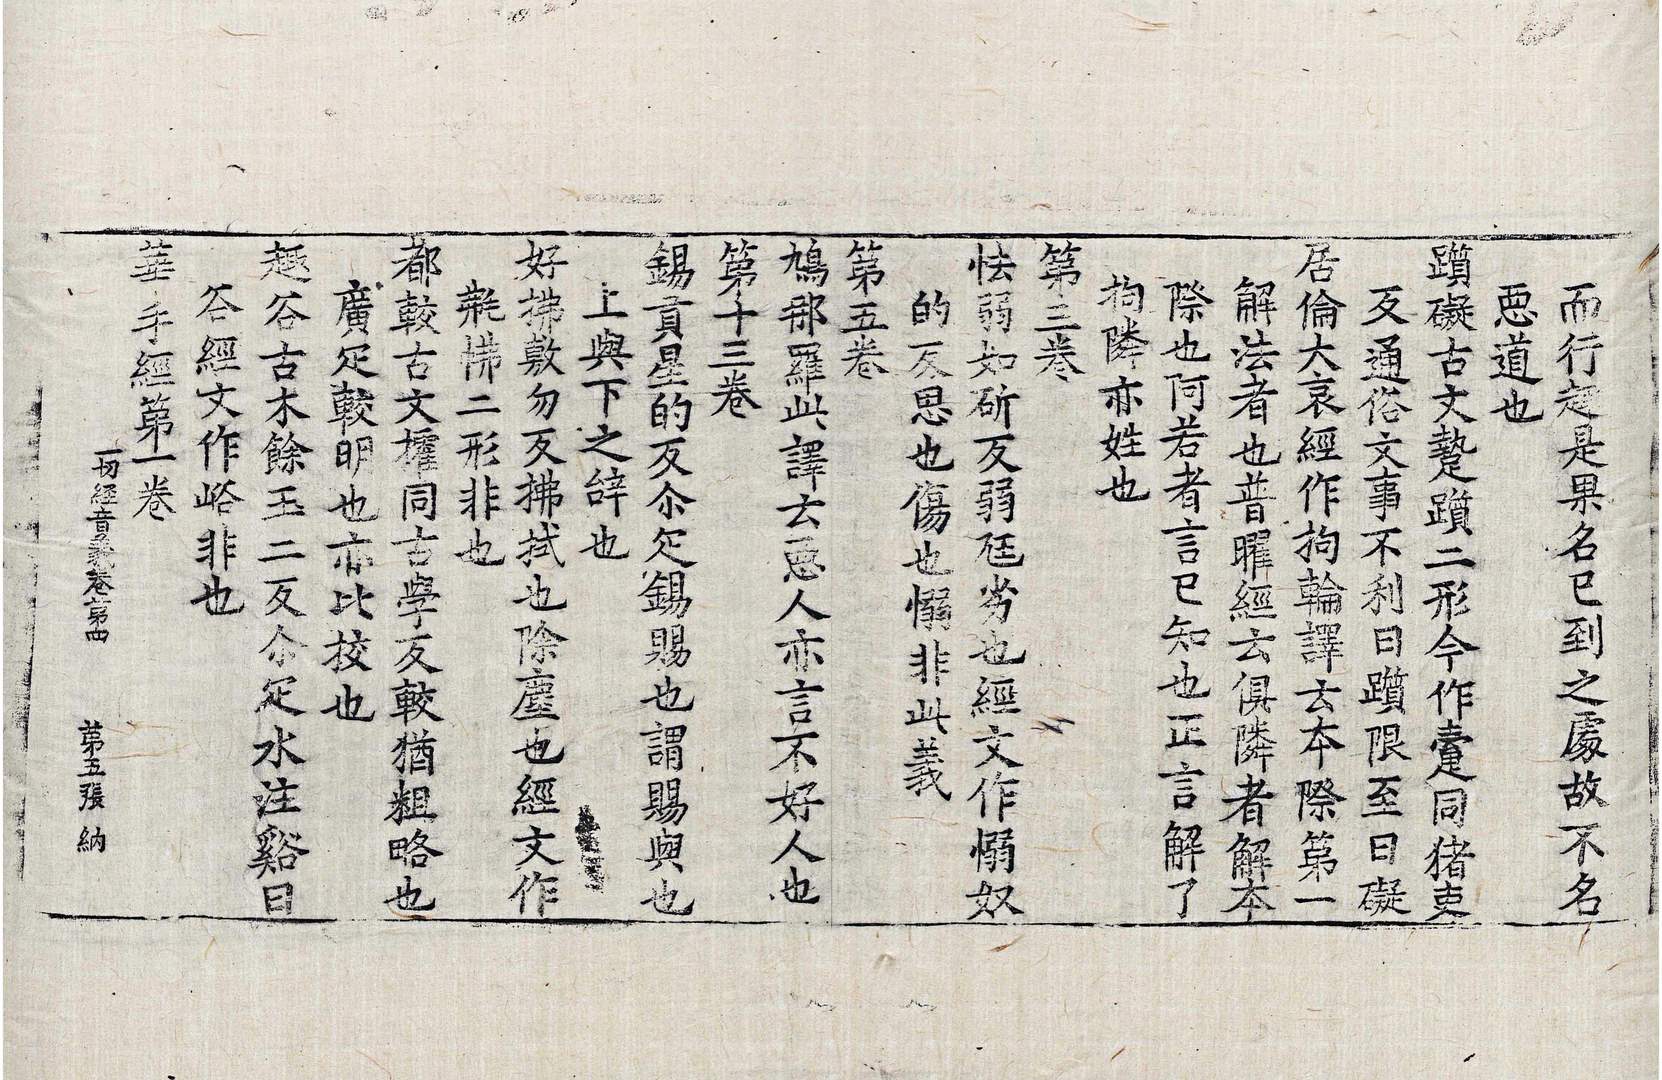 而行趣是果名已到之處故不名
惡道也
躓礙古文躓二形今作疐同猪吏
反通俗文事不利曰躓限至曰礙
居倫大哀經作拘輪譯云本際第一
解法者也普曜經云俱隣者解本
際也阿若者言已知也正言解了
拘隣亦姓也
第三卷
怯弱如斫反弱尫劣也經文作愵奴
的反思也傷也愵非此義
第五卷
鳩那羅此譯云惡人亦言不好人也
第十三卷
錫貢星的反尒疋錫賜也謂賜與也
上與下之辝也
好拂敷勿反拂拭也除塵也經文作
㲪怫二形非也
都較古文搉同古學反較猶粗略也
廣疋較明也亦比挍也
𧾷谷古木餘玉二反尒疋水注谿曰
谷經文作峪非也
華手經第一卷
一切經音義卷第四 第五張 納